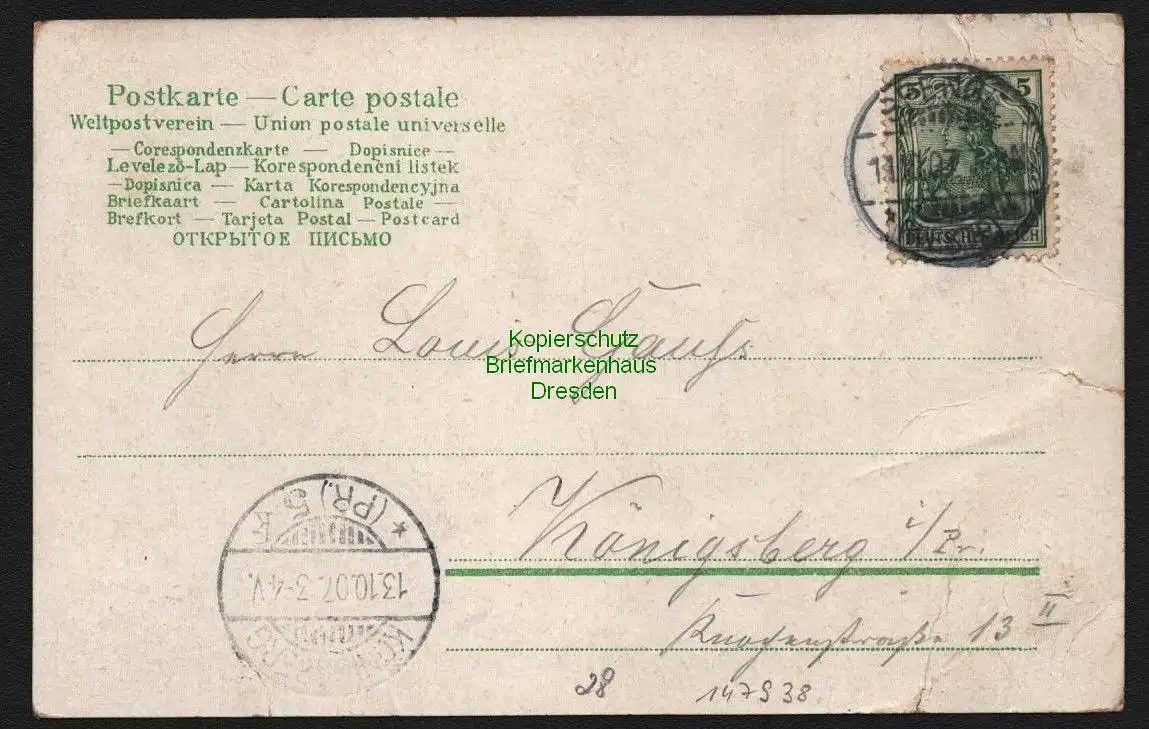 Postkarte — Carte postale
Weltpostverein — Union postale universelle
— Corespondenzkarte — Dopisnice —
Levelező-Lap — Korespondenční listek
— Dopisnica — Karta Korespondencyjna
Briefkaart — Cartolina Postale —
Brefkort — Tarjeta Postal — Postcard
ОТКРЫТОЕ ПИСЬМО
5 5
DEUTSCHES REICH
Herrn Louis Gauß
Kopierschutz
Briefmarkenhaus
Dresden
Königsberg i/Pr.
Knochenstraße 13 II
(PR.) 5
13.10.07. 3-4 V.
28 147938